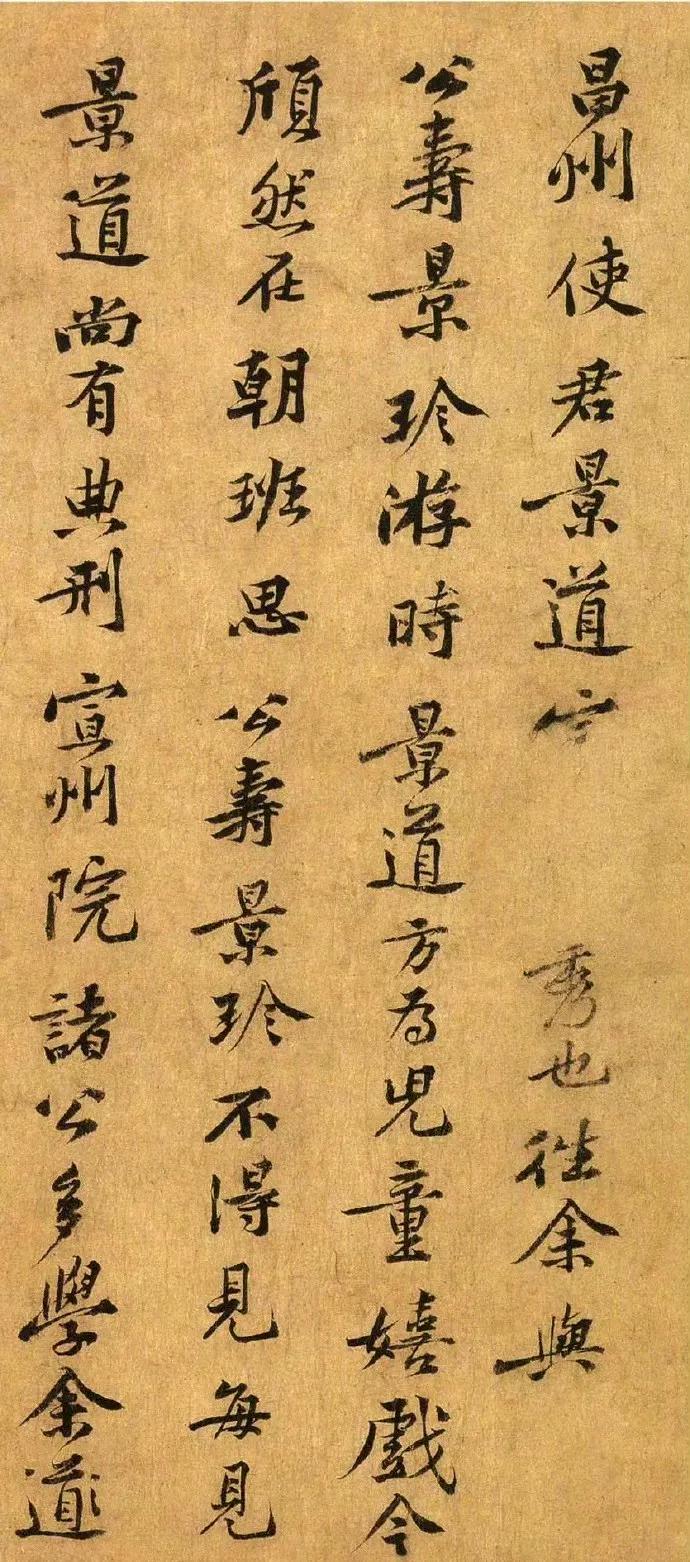 昌州使君景道秀也往余與
公壽景珍游時景道方為兒童嬉戲今
頎然在朝班思公壽景珍不得見每見
景道尚有典刑宣州院諸公多學余道